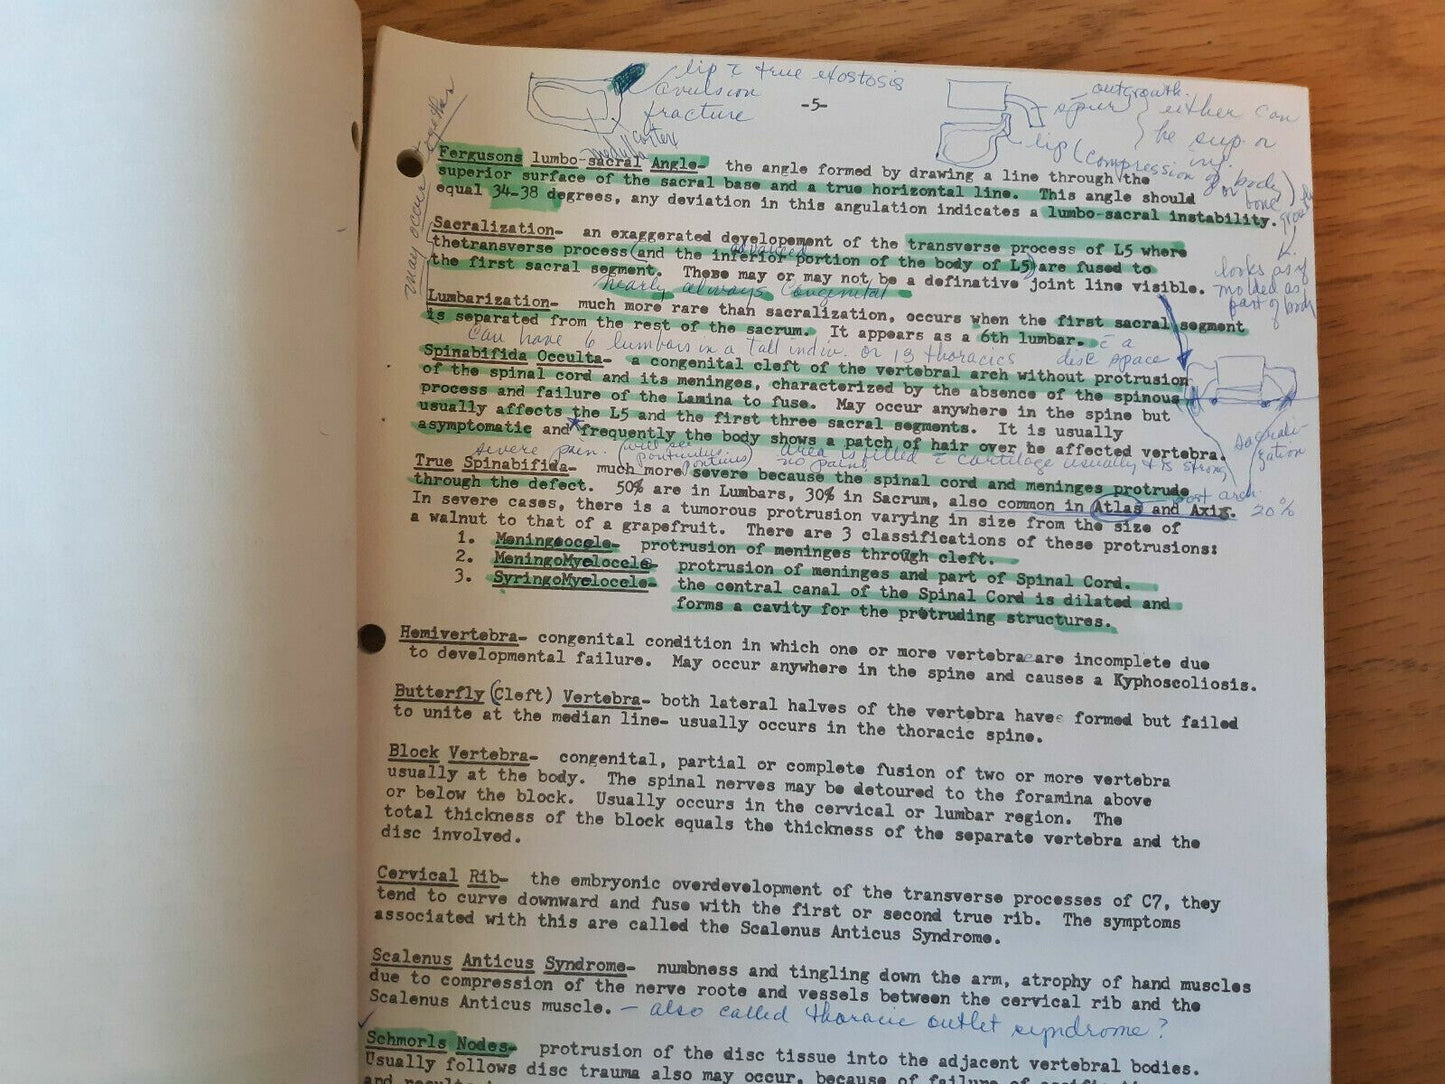 lip c̄ true exostosis
avulsion
fracture
cortex
-5-
outgrowth
spur
either can
be sup or
inf.
lip (compression of body)
or
bone
may occur together
Fergusons lumbo-sacral Angle- the angle formed by drawing a line through the
superior surface of the sacral base and a true horizontal line. This angle should
equal 34-38 degrees, any deviation in this angulation indicates a lumbo-sacral instability.
Sacralization- an exaggerated developement of the transverse process of L5 where
thetransverse process (and the inferior portion of the body of L5) are fused to
the first sacral segment. These may or may not be a definative joint line visible.
nearly always congenital
looks as if
molded as
part of body
Lumbarization- much more rare than sacralization, occurs when the first sacral segment
is separated from the rest of the sacrum. It appears as a 6th lumbar. c̄ a
can have 6 lumbars in a tall indiv. or 13 thoracics disc space
Spinabifida Occulta- a congenital cleft of the vertebral arch without protrusion
of the spinal cord and its meninges, characterized by the absence of the spinous
process and failure of the Lamina to fuse. May occur anywhere in the spine but
usually affects the L5 and the first three sacral segments. It is usually
asymptomatic and frequently the body shows a patch of hair over he affected vertebra.
sacrali-
zation
severe pain. area is filled c̄ cartilage usually & is strong
no pain
True Spinabifida- much more severe because the spinal cord and meninges protrude
through the defect. 50% are in Lumbars, 30% in Sacrum, also common in Atlas and Axis.
post arch
20%
In severe cases, there is a tumorous protrusion varying in size from the size of
a walnut to that of a grapefruit. There are 3 classifications of these protrusions:
1. Meningeocele- protrusion of meninges through cleft.
2. MeningoMyelocele- protrusion of meninges and part of Spinal Cord.
3. SyringoMyelocele- the central canal of the Spinal Cord is dilated and
forms a cavity for the protruding structures.
Hemivertebra- congenital condition in which one or more vertebrae are incomplete due
to developmental failure. May occur anywhere in the spine and causes a Kyphoscoliosis.
Butterfly (Cleft) Vertebra- both lateral halves of the vertebra have formed but failed
to unite at the median line- usually occurs in the thoracic spine.
Block Vertebra- congenital, partial or complete fusion of two or more vertebra
usually at the body. The spinal nerves may be detoured to the foramina above
or below the block. Usually occurs in the cervical or lumbar region. The
total thickness of the block equals the thickness of the separate vertebra and the
disc involved.
Cervical Rib- the embryonic overdevelopment of the transverse processes of C7, they
tend to curve downward and fuse with the first or second true rib. The symptoms
associated with this are called the Scalenus Anticus Syndrome.
Scalenus Anticus Syndrome- numbness and tingling down the arm, atrophy of hand muscles
due to compression of the nerve roots and vessels between the cervical rib and the
Scalenus Anticus muscle. - also called thoracic outlet syndrome?
Schmorls Nodes- protrusion of the disc tissue into the adjacent vertebral bodies.
Usually follows disc trauma also may occur, because of failure of